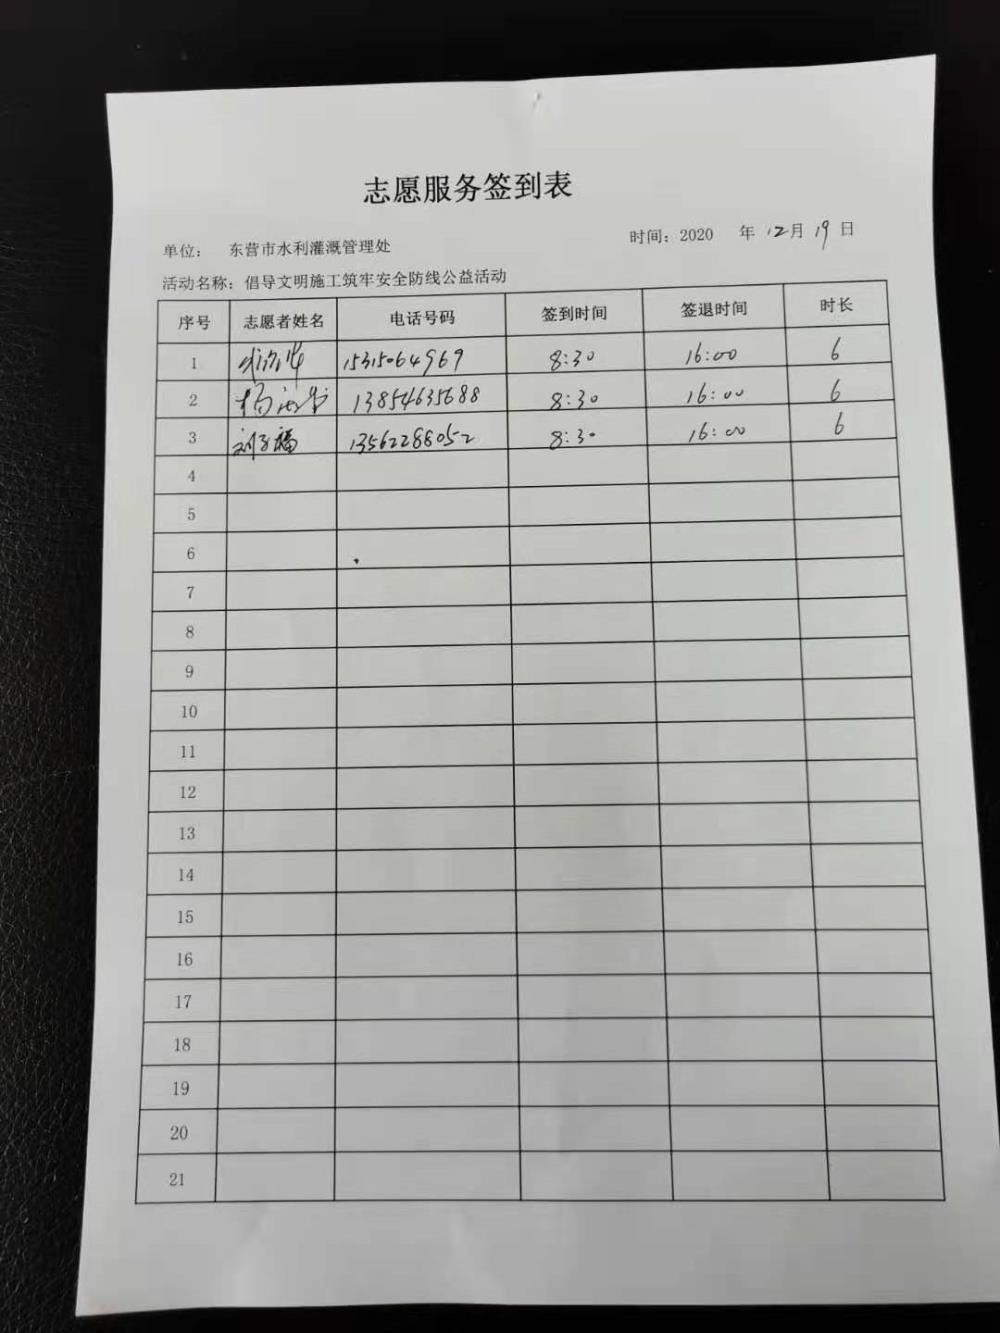 志愿服务签到表
单位： 东营市水利灌溉管理处 时间：2020 年 12月 19 日
活动名称：倡导文明施工筑牢安全防线公益活动
序号 志愿者姓名 电话号码 签到时间 签退时间 时长
1 15315064969 8:30 16:00 6
2 杨 13854635688 8:30 16:00 6
3 刘子福 13562288052 8:30 16:00 6
4
5
6
7
8
9
10
11
12
13
14
15
16
17
18
19
20
21